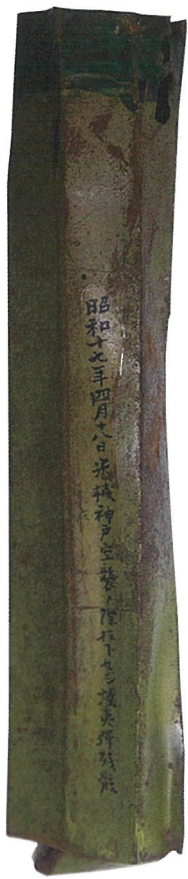 昭和十七年四月十八日米機神戸空襲ノ際投下セシ焼夷弾残骸